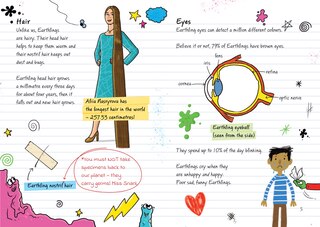 Hair
Unlike us, Earthlings
are hairy. Their head hair
helps to keep them warm and
their nostril hair keeps out
dust and bugs.
Earthling head hair grows
a millimetre every three days
for about four years, then it
falls out and new hair grows.
Aliia Nasyrova has
the longest hair in the world
– 257.33 centimetres!
Earthling nostril hair
*You must NOT take
specimens back to
our planet – they
carry germs!
Eyes
Earthling eyes can detect a million different colours.
Believe it or not, 79% of Earthlings have brown eyes.
lens
iris
retina
cornea
optic nerve
Earthling eyeball
(seen from the side)
They spend up to 10% of the day blinking.
Earthlings cry when they
are unhappy and happy.
Poor sad, funny Earthlings.
5